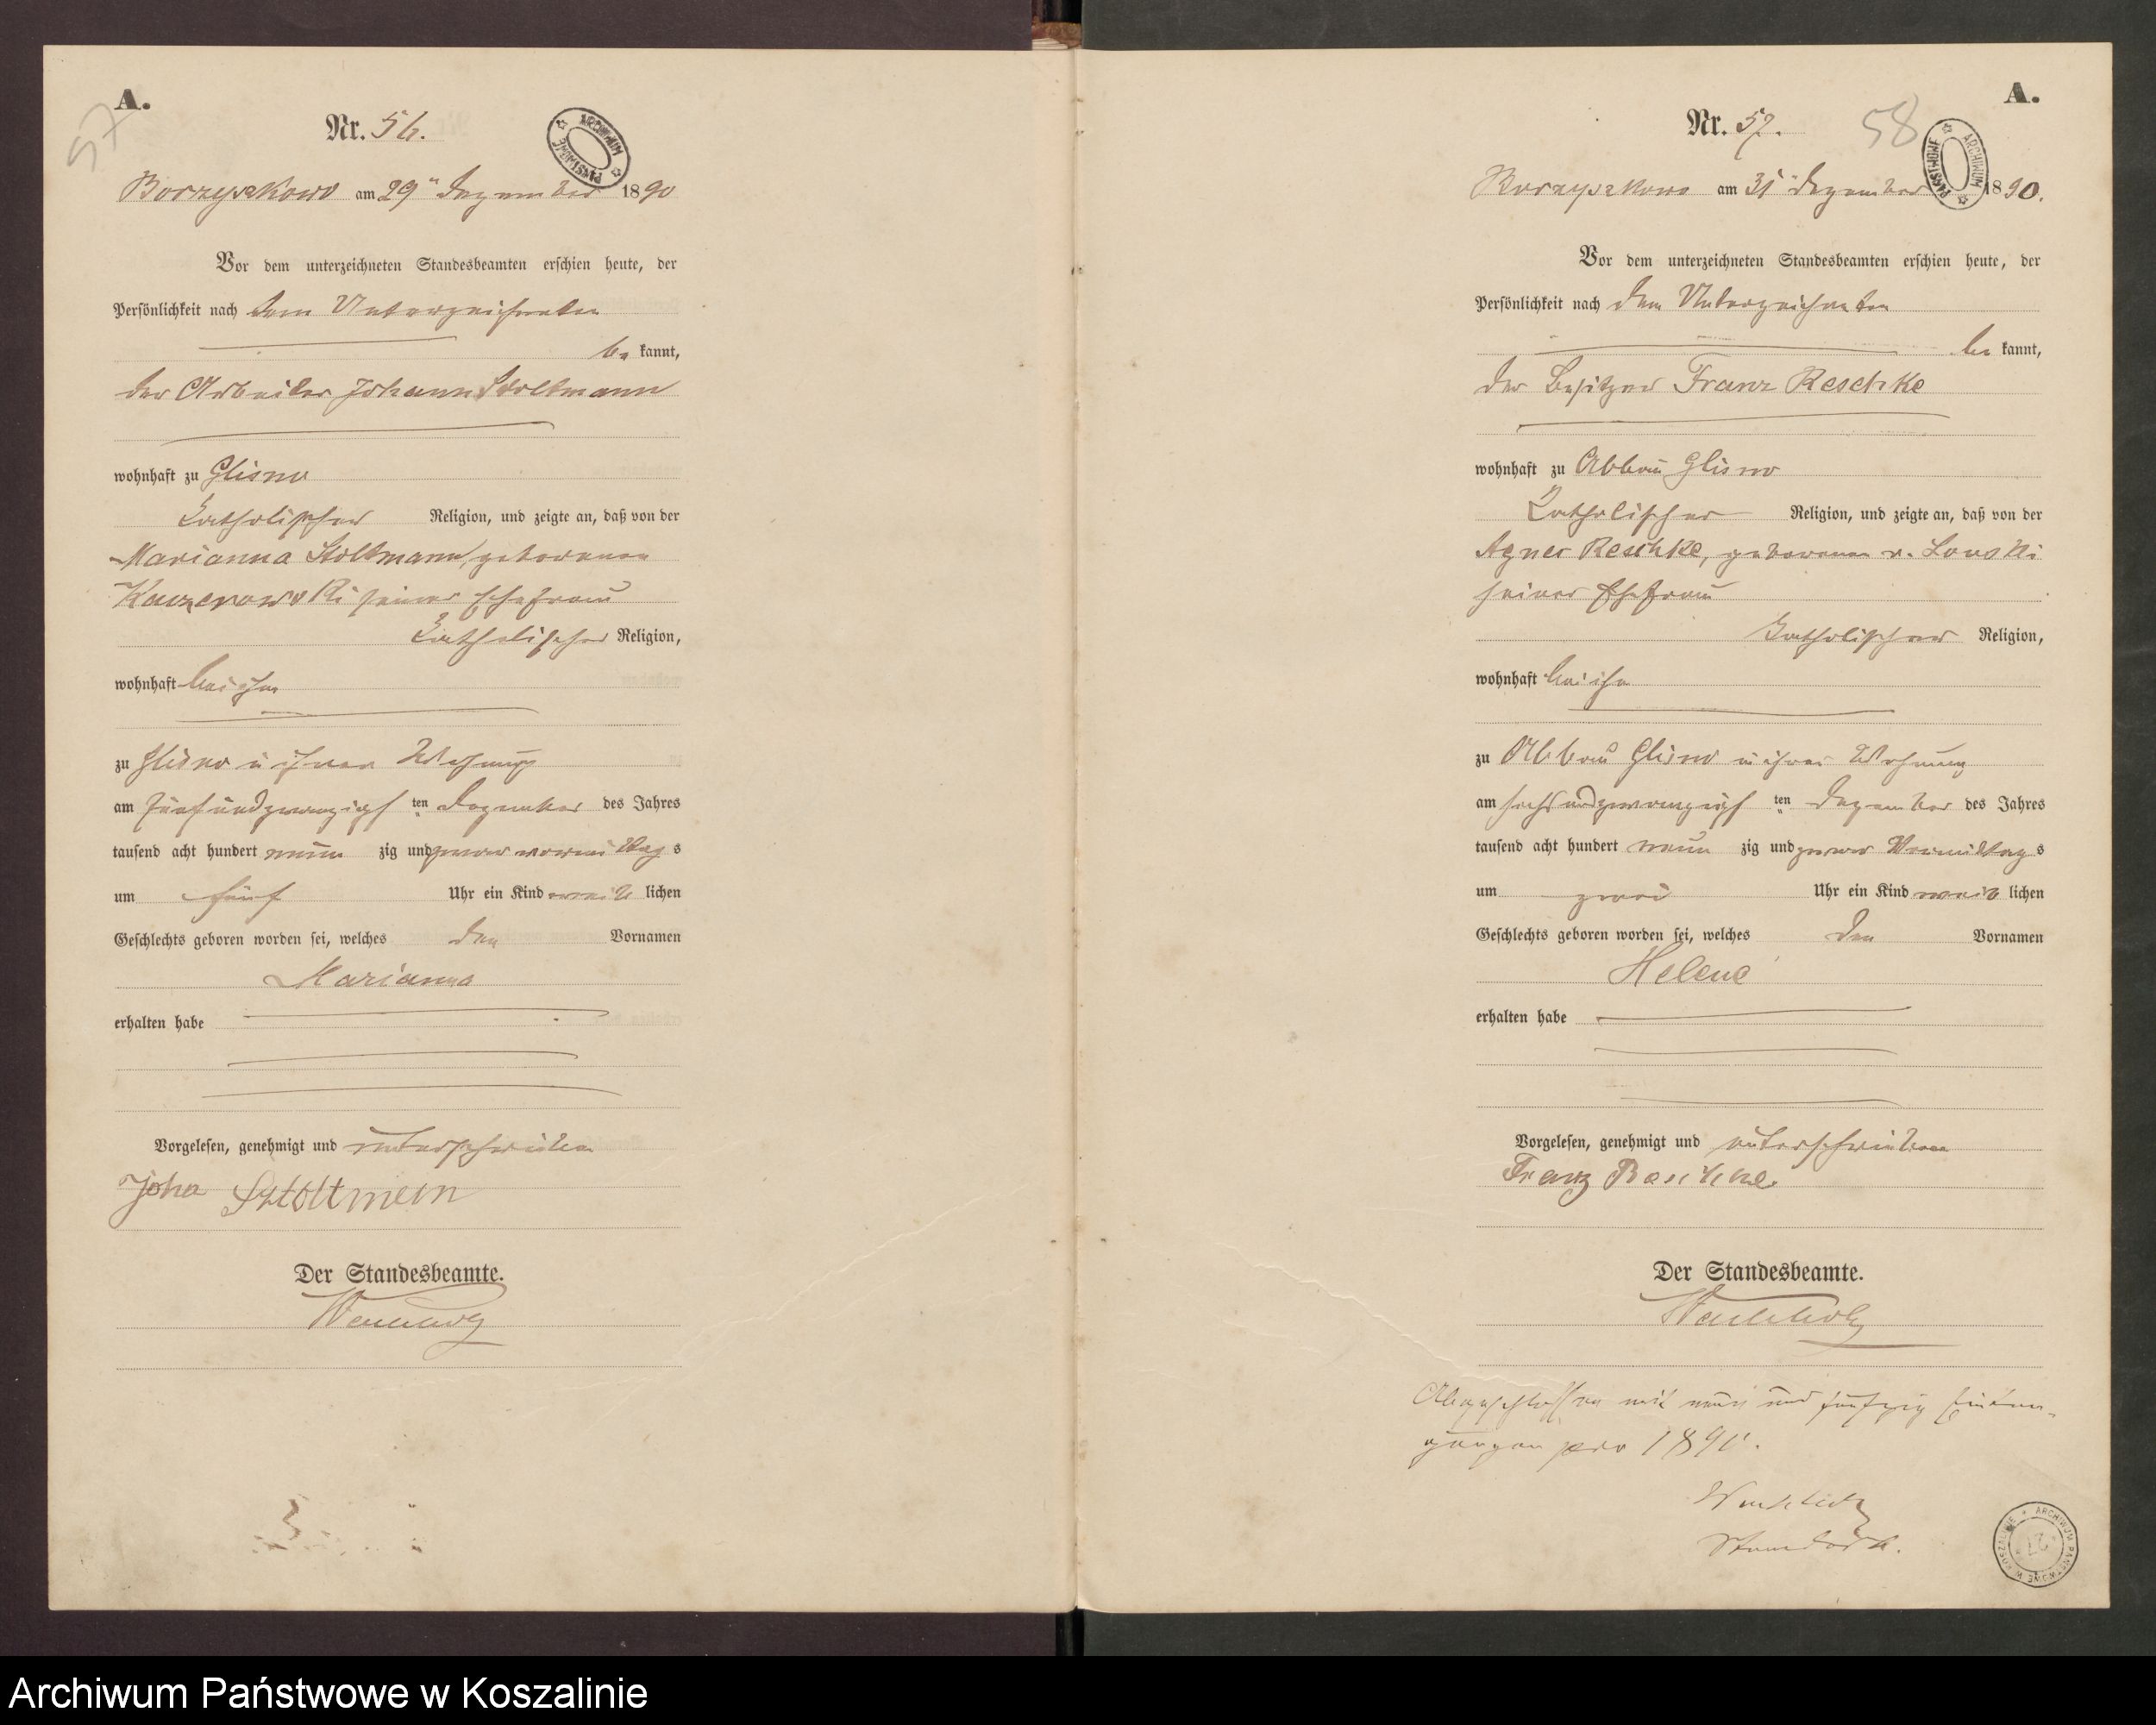 A.
57
Nr. 56.
ARCHIWUM PAŃSTWOWE
Borzyszkowo am 29ten Dezember 1890
Vor dem unterzeichneten Standesbeamten erschien heute, der
Persönlichkeit nach dem Unterzeichneten
be kannt,
der Arbeiter Johann Stoltmann
wohnhaft zu Glisno
katholischer Religion, und zeigte an, daß von der
Marianna Stoltmann, geborenen
seiner Ehefrau
katholischer Religion,
wohnhaft bei ihm
zu Glisno in ihrer Wohnung
am fünfundzwanzigsten Dezember des Jahres
tausend acht hundert neun zig und zwar vormittags
um fünf Uhr ein Kind weiblichen
Geschlechts geboren worden sei, welches den Vornamen
Marianna
erhalten habe
Vorgelesen, genehmigt und unterschrieben
Joha
Der Standesbeamte.
A.
58
Nr. 57.
ARCHIWUM PAŃSTWOWE
Borzyszkowo am 31ten Dezember 1890.
Vor dem unterzeichneten Standesbeamten erschien heute, der
Persönlichkeit nach dem Unterzeichneten
be kannt,
der Besitzer Franz Reschke
wohnhaft zu Abbau Glisno
katholischer Religion, und zeigte an, daß von der
Agnes Reschke, geborenen v.
seiner Ehefrau
katholischer Religion,
wohnhaft bei ihm
zu Abbau Glisno in ihrer Wohnung
am sechsundzwanzigsten Dezember des Jahres
tausend acht hundert neun zig und zwar Vormittags
um zwei Uhr ein Kind weiblichen
Geschlechts geboren worden sei, welches den Vornamen
Helene
erhalten habe
Vorgelesen, genehmigt und unterschrieben
Franz
Der Standesbeamte.
Abgeschlossen mit und fünfzig Eintra-
gungen pro 1890.
ARCHIWUM PAŃSTWOWE W KOSZALINIE
Archiwum Państwowe w Koszalinie